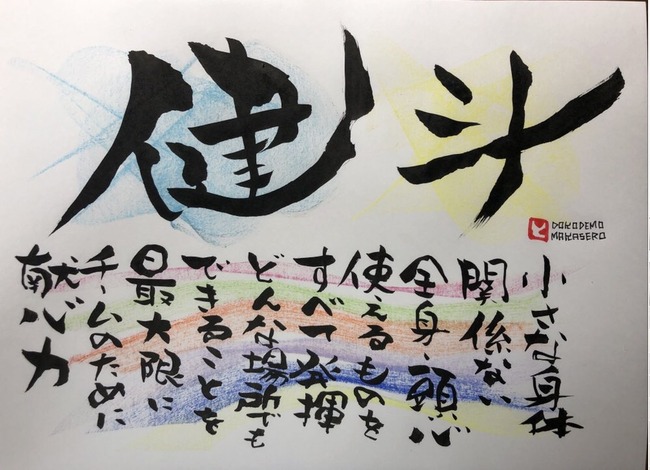 健斗
と
DOKODEMO
MAKASERO
小さな身体
関係ない
全身、頭、心
使えるものを
すべて発揮
どんな場所でも
できることを
最大限に
チームのために
献心力